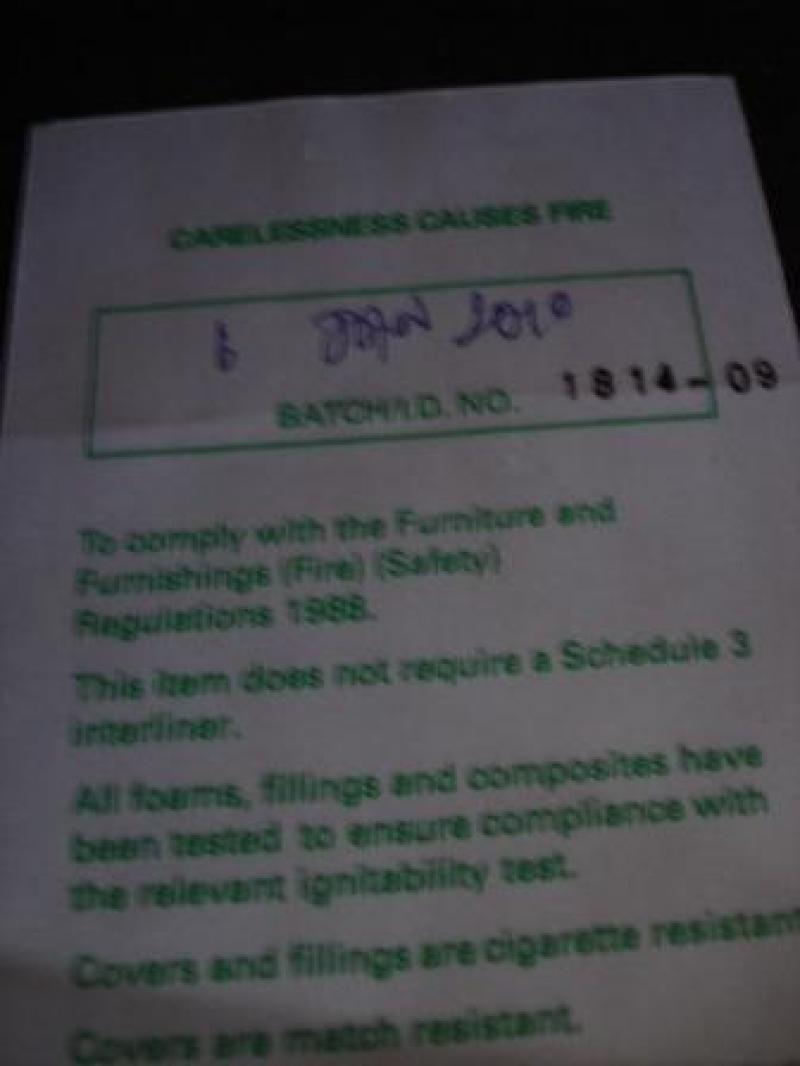 CARELESSNESS CAUSES FIRE
JAN 2010
BATCH/I.D. NO. 1814-09
To comply with the Furniture and
Furnishings (Fire) (Safety)
Regulations 1988.
This item does not require a Schedule 3
interliner.
All foams, fillings and composites have
been tested to ensure compliance with
the relevant ignitability test.
Covers and fillings are cigarette resistant
Covers are match resistant.